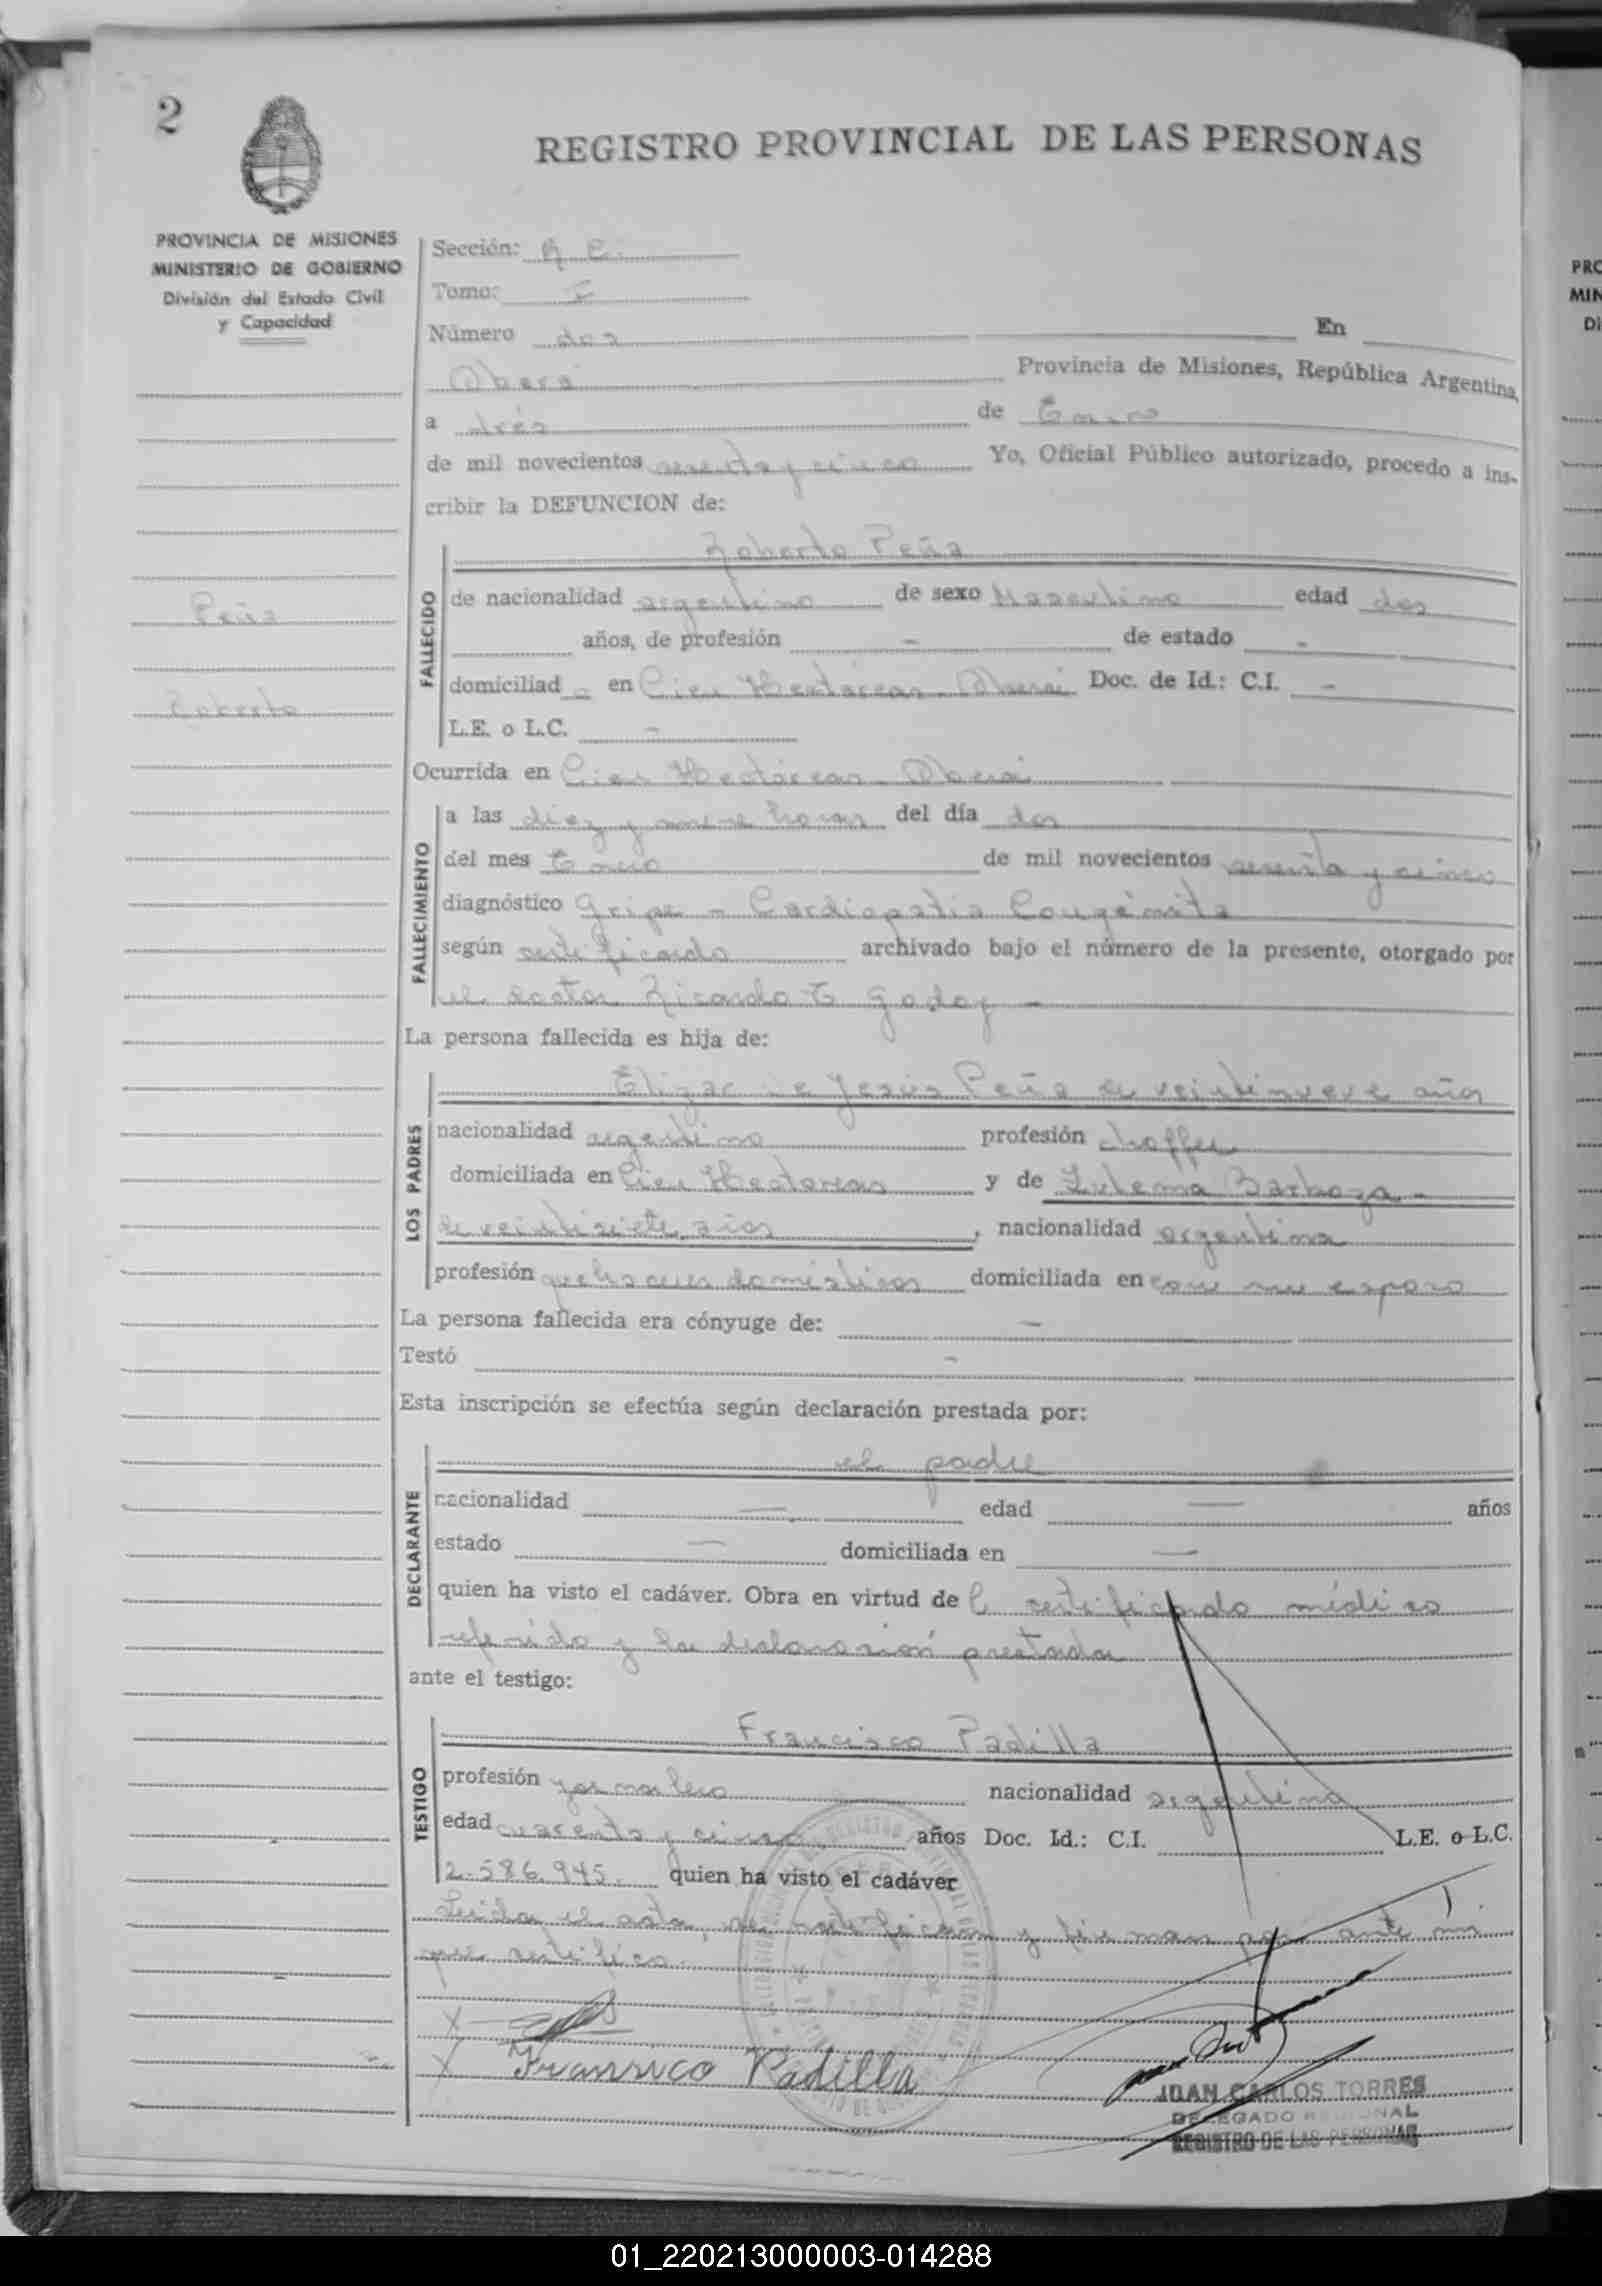 2
REGISTRO PROVINCIAL DE LAS PERSONAS
PROVINCIA DE MISIONES
MINISTERIO DE GOBIERNO
División del Estado Civil
y Capacidad
Peña
Roberto
Sección:
Tomo: I
Número dos En
Oberá Provincia de Misiones, República Argentina,
a tres de Enero
de mil novecientos sesenta y cinco Yo, Oficial Público autorizado, procedo a ins-
cribir la DEFUNCION de:
Roberto Peña
FALLECIDO
de nacionalidad argentino de sexo Masculino edad dos
años, de profesión - de estado -
domiciliad o en Cien Hectáreas - Oberá Doc. de Id.: C.I. -
L.E. o L.C. -
Ocurrida en Cien Hectáreas - Oberá
FALLECIMIENTO
a las diez y nueve horas del día dos
del mes Enero de mil novecientos sesenta y cinco
diagnóstico Gripe - Cardiopatia Congénita
según certificado archivado bajo el número de la presente, otorgado por
el doctor Ricardo E Godoy -
La persona fallecida es hija de:
LOS PADRES
de Jesús Peña de veintinueve años
nacionalidad argentino profesión choffer
domiciliada en Cien Hectareas y de Zulema Barboza -
de veintisiete años, nacionalidad argentina
profesión quehaceres domésticos domiciliada en con su esposo
La persona fallecida era cónyuge de: -
Testó -
Esta inscripción se efectúa según declaración prestada por:
DECLARANTE
el padre
nacionalidad — edad — años
estado — domiciliada en —
quien ha visto el cadáver. Obra en virtud de l certificado médico
referido y la declaración prestada
ante el testigo:
TESTIGO
Francisco Padilla
profesión jornalero nacionalidad argentino
edad cuarenta y cinco años Doc. Id.: C.I. L.E. o L.C.
2.586.945. quien ha visto el cadáver
Leída el acta, se ratifican y firman por ante mí
que certifico.
X
X Fransisco Padilla
JUAN CARLOS TORRES
DELEGADO REGIONAL
REGISTRO DE LAS PERSONAS
PRO
MIN
Di
01_220213000003-014288